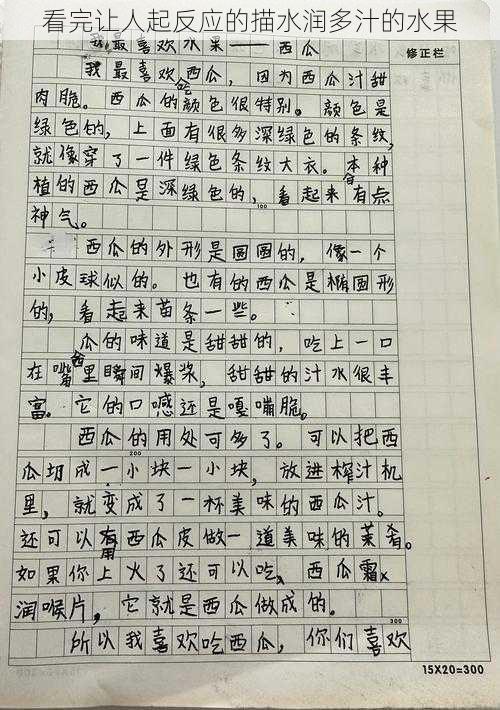 看完让人起反应的描水润多汁的水果
我最喜欢水果——西瓜
修正栏
我最喜欢西瓜，因为西瓜汁甜
吃
肉脆。西瓜的颜色很特别。颜色是
绿色的，上面有很多深绿色的条纹，
就像穿了一件绿色条纹大衣。本种
植的西瓜是深绿色的，看起来有点
100
神气。
西瓜的外形是圆圆的，像一个
小皮球似的。也有的西瓜是椭圆形
的，看起来苗条一些。
瓜的味道是甜甜的，吃上一口
西
在嘴里瞬间爆浆，甜甜的汁水很丰
富。它的口感还是嘎嘣脆。
西瓜的用处可多了。可以把西
200
瓜切成一小块一小块，放进榨汁机
里，就变成了一杯美味的西瓜汁。
还可以用西瓜皮做一道美味的菜肴。
如果你上火了还可以吃，西瓜霜
润喉片，它就是西瓜做成的。
300
所以我喜欢吃西瓜，你们喜欢
15X20=300